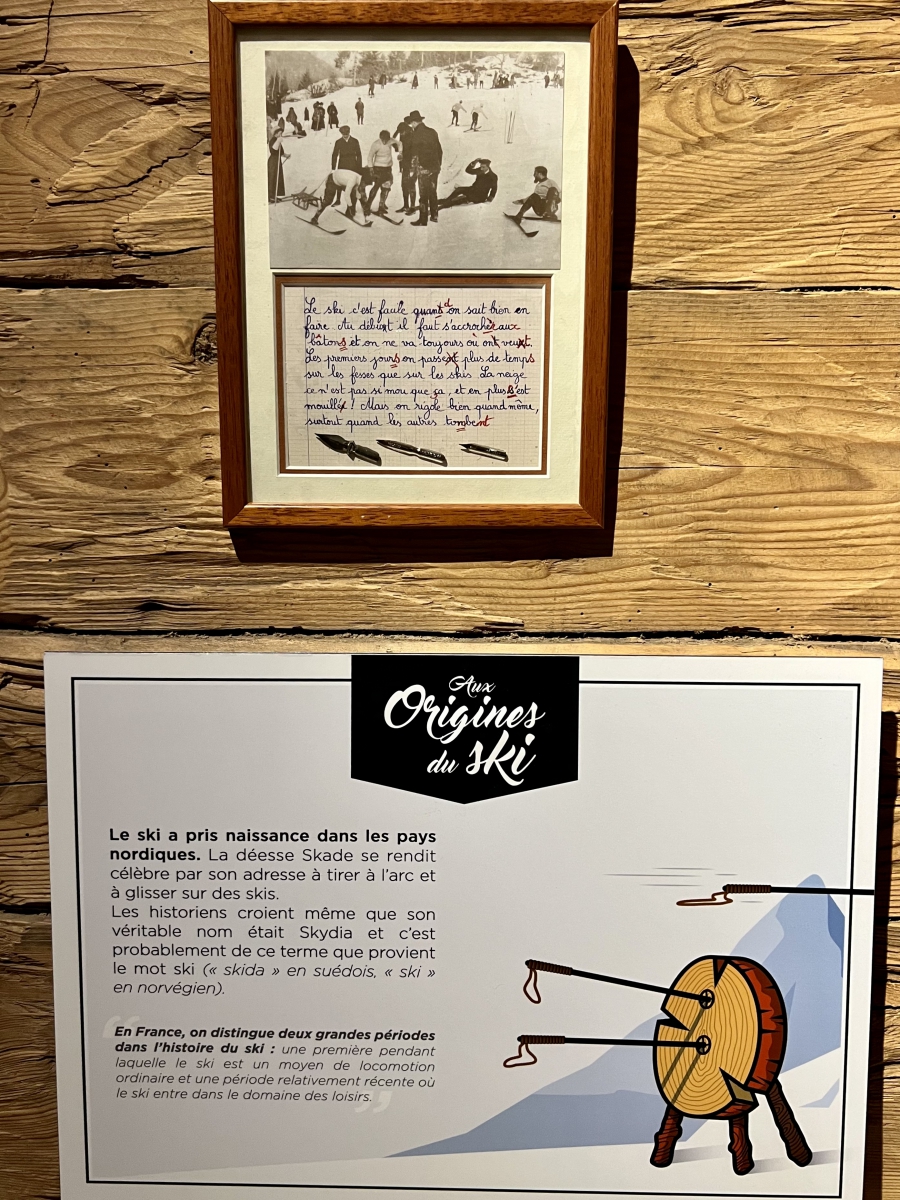 Le ski c'est facile quand on sait bien en
faire. Au début il faut s'accrocher aux
bâtons et on ne va toujours où ont veut.
Les premiers jours on passe plus de temps
sur les fesses que sur les skis. La neige
ce n'est pas si mou que ça, et en plus s'est
mouillé! Mais on rigole bien quand même,
surtout quand les autres tombent
Aux
Origines
du ski
Le ski a pris naissance dans les pays
nordiques. La déesse Skade se rendit
célèbre par son adresse à tirer à l'arc et
à glisser sur des skis.
Les historiens croient même que son
véritable nom était Skydia et c'est
probablement de ce terme que provient
le mot ski (« skida » en suédois, « ski »
en norvégien).
“
En France, on distingue deux grandes périodes
dans l'histoire du ski : une première pendant
laquelle le ski est un moyen de locomotion
ordinaire et une période relativement récente où
le ski entre dans le domaine des loisirs.
”